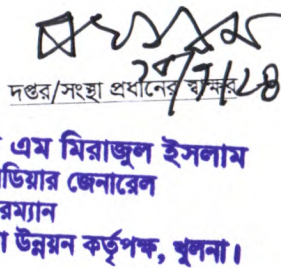 ২৮/৭/২৪
দপ্তর/সংস্থা প্রধানের স্বাক্ষর
এম মিরাজুল ইসলাম
ডিয়ার জেনারেল
রম্যান
উন্নয়ন কর্তৃপক্ষ, খুলনা।